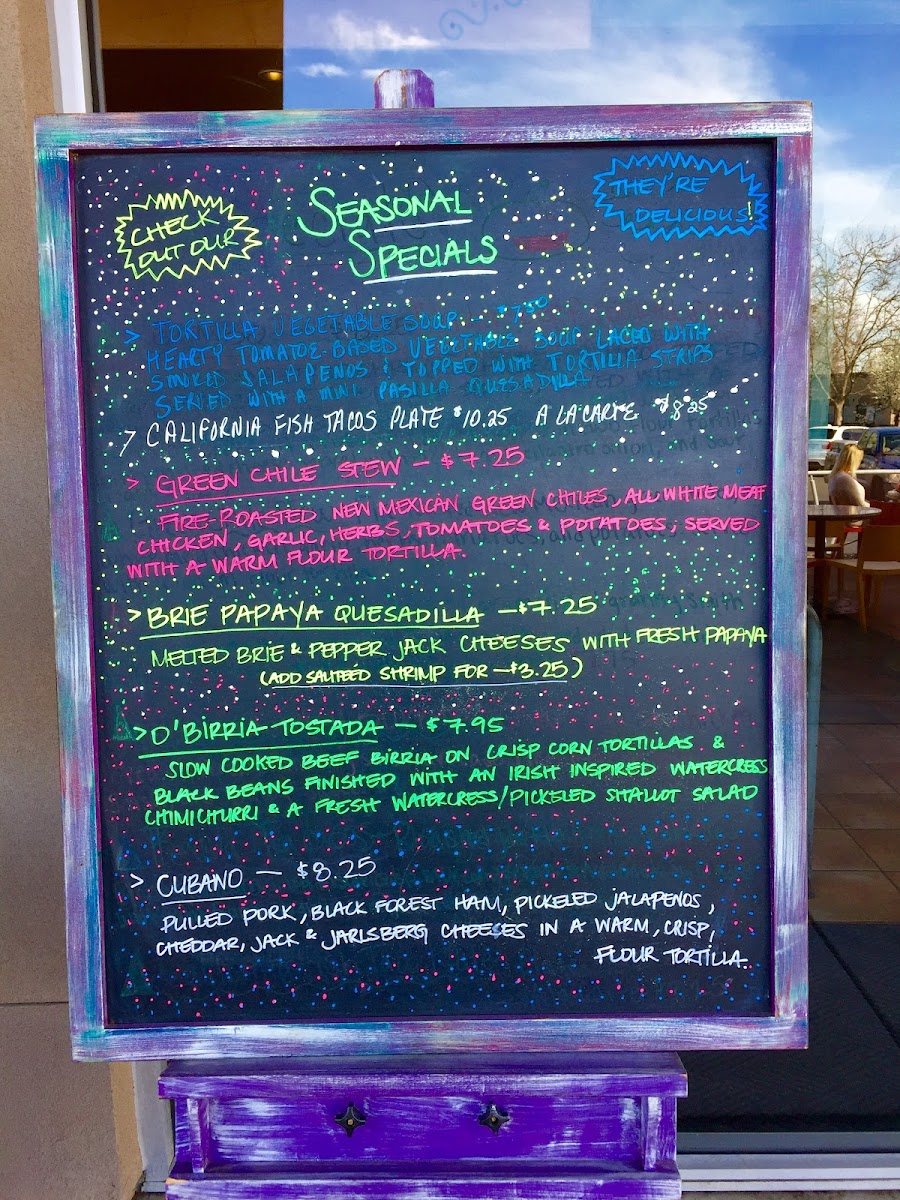 CHECK
OUT OUR
SEASONAL
SPECIALS
THEY'RE
DELICIOUS!
> TORTILLA VEGETABLE SOUP — $7.50
HEARTY TOMATOE-BASED VEGETABLE SOUP LACED WITH
SMOKED JALAPENOS & TOPPED WITH TORTILLA STRIPS
SERVED WITH A MINI PASILLA QUESADILLA
> CALIFORNIA FISH TACOS PLATE $10.25 A LA CARTE $8.25
> GREEN CHILE STEW — $7.25
FIRE-ROASTED NEW MEXICAN GREEN CHILES, ALL WHITE MEAT
CHICKEN, GARLIC, HERBS, TOMATOES & POTATOES; SERVED
WITH A WARM FLOUR TORTILLA.
> BRIE PAPAYA QUESADILLA — $7.25
MELTED BRIE & PEPPER JACK CHEESES WITH FRESH PAPAYA
(ADD SAUTEED SHRIMP FOR — $3.25)
> D'BIRRIA TOSTADA — $7.95
SLOW COOKED BEEF BIRRIA ON CRISP CORN TORTILLAS &
BLACK BEANS FINISHED WITH AN IRISH INSPIRED WATERCRESS
CHIMICHURRI & A FRESH WATERCRESS/PICKELED SHALLOT SALAD
> CUBANO — $8.25
PULLED PORK, BLACK FOREST HAM, PICKELED JALAPENOS,
CHEDDAR, JACK & JARLSBERG CHEESES IN A WARM, CRISP,
FLOUR TORTILLA.